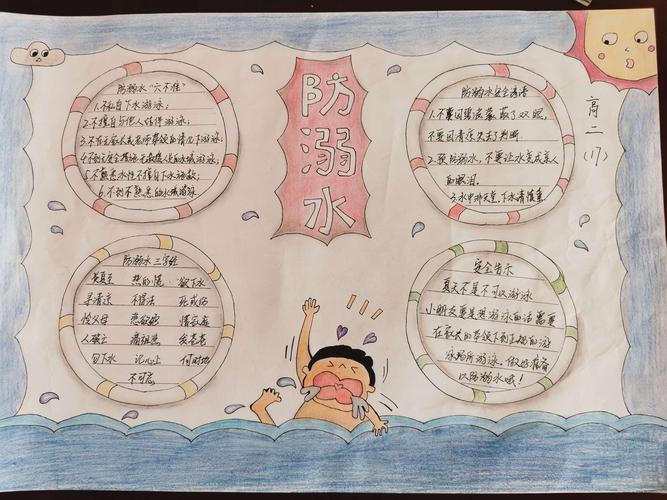 防溺水
高二(17)
防溺水“六不准”
1.不私自下水游泳;
2.不擅自与他人结伴游泳;
3.不在无家长或老师带领的情况下游泳;
4.不到无安全设施、无救援人员的水域游泳;
5.不熟悉水性不擅自下水施救;
6.不到不熟悉的水域游泳
防溺水安全标语
1.不要因碧波蒙蔽了双眼,
不要因清凉失去判断
2.预防溺水,不要让水变成亲人
的眼泪。
3.水中非天堂,下水请慎重
防溺水三字经
炎夏至 热的慌 欲下水
寻清凉 不得法 死或伤
人离去
勿下水 记心上 何时地
不可忘
安全告示
夏天不是不可以游泳
小朋友要是想游泳的话需要
在家长的带领下到正规的游
泳场所游泳。做好准备
以防溺水哦!